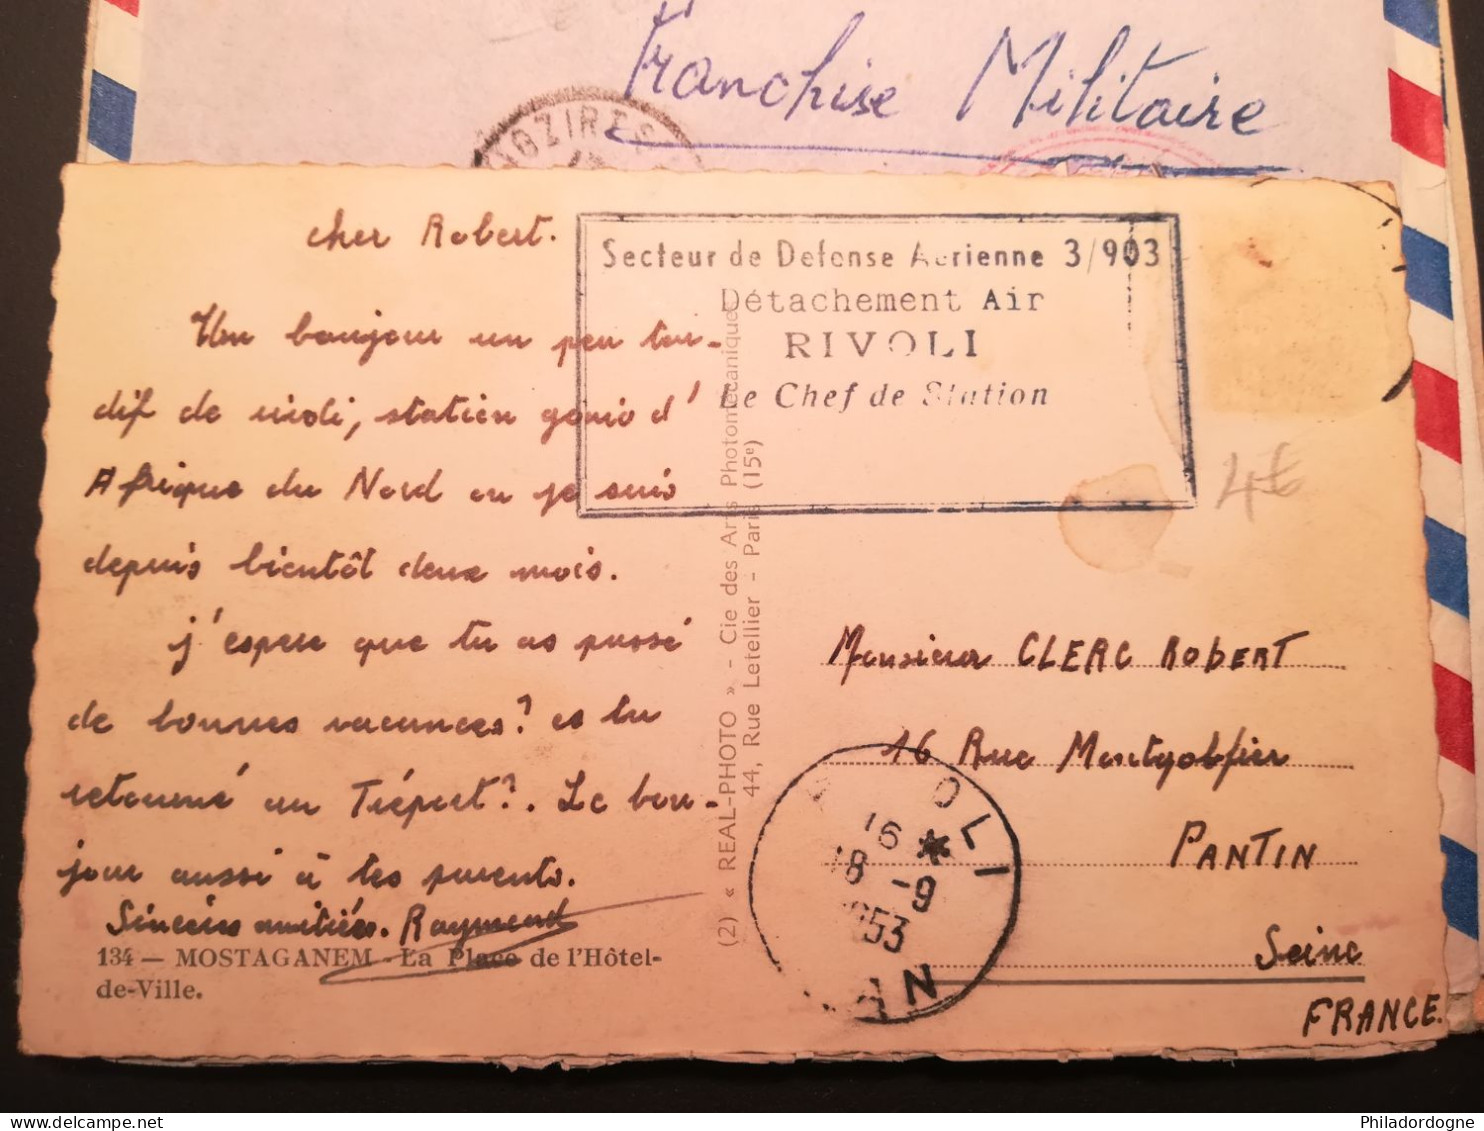 Franchise Militaire
cher Robert.
Un bonjour un peu tar-
dif de midi, station genio d'
Afrique du Nord ou je suis
depuis bientôt deux mois.
j'espere que tu as passé
de bonnes vacances? es tu
retourné au Tréport?. Le bon-
jour aussi à tes parents.
Sincères amitiés. Raymond
134 — MOSTAGANEM - La Place de l'Hôtel-
de-Ville.
(2) « REAL-PHOTO » - Cie des Arts Photomécaniques
44, Rue Letellier - Paris (15e)
Secteur de Defense Aerienne 3/903
Détachement Air
RIVOLI
Le Chef de Station
4€
Monsieur CLERC ROBERT
16 Rue Montgolfier
PANTIN
Seine
FRANCE.
OLI
16 *
18 -9
953
AN
Philadordogne